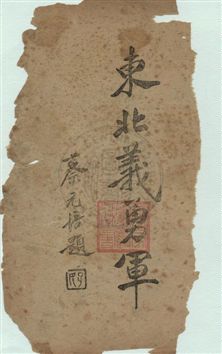 東北義勇軍
蔡元培題